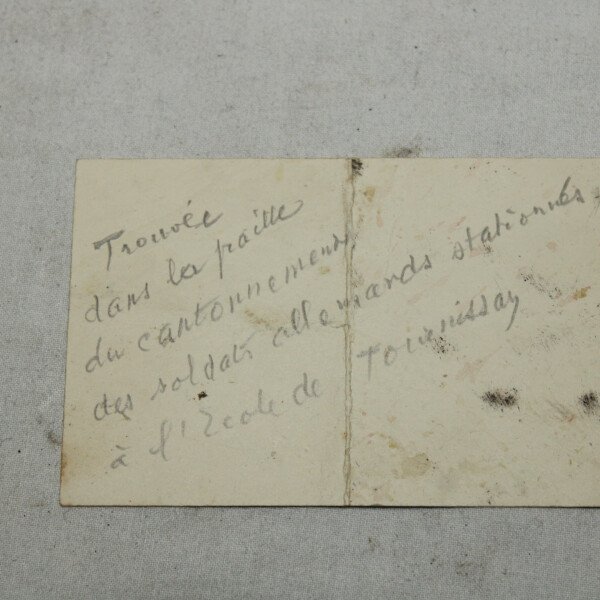 Trouvée
dans la paille
du cantonnement
des soldats allemands stationnés
à l'Ecole de Tournissan